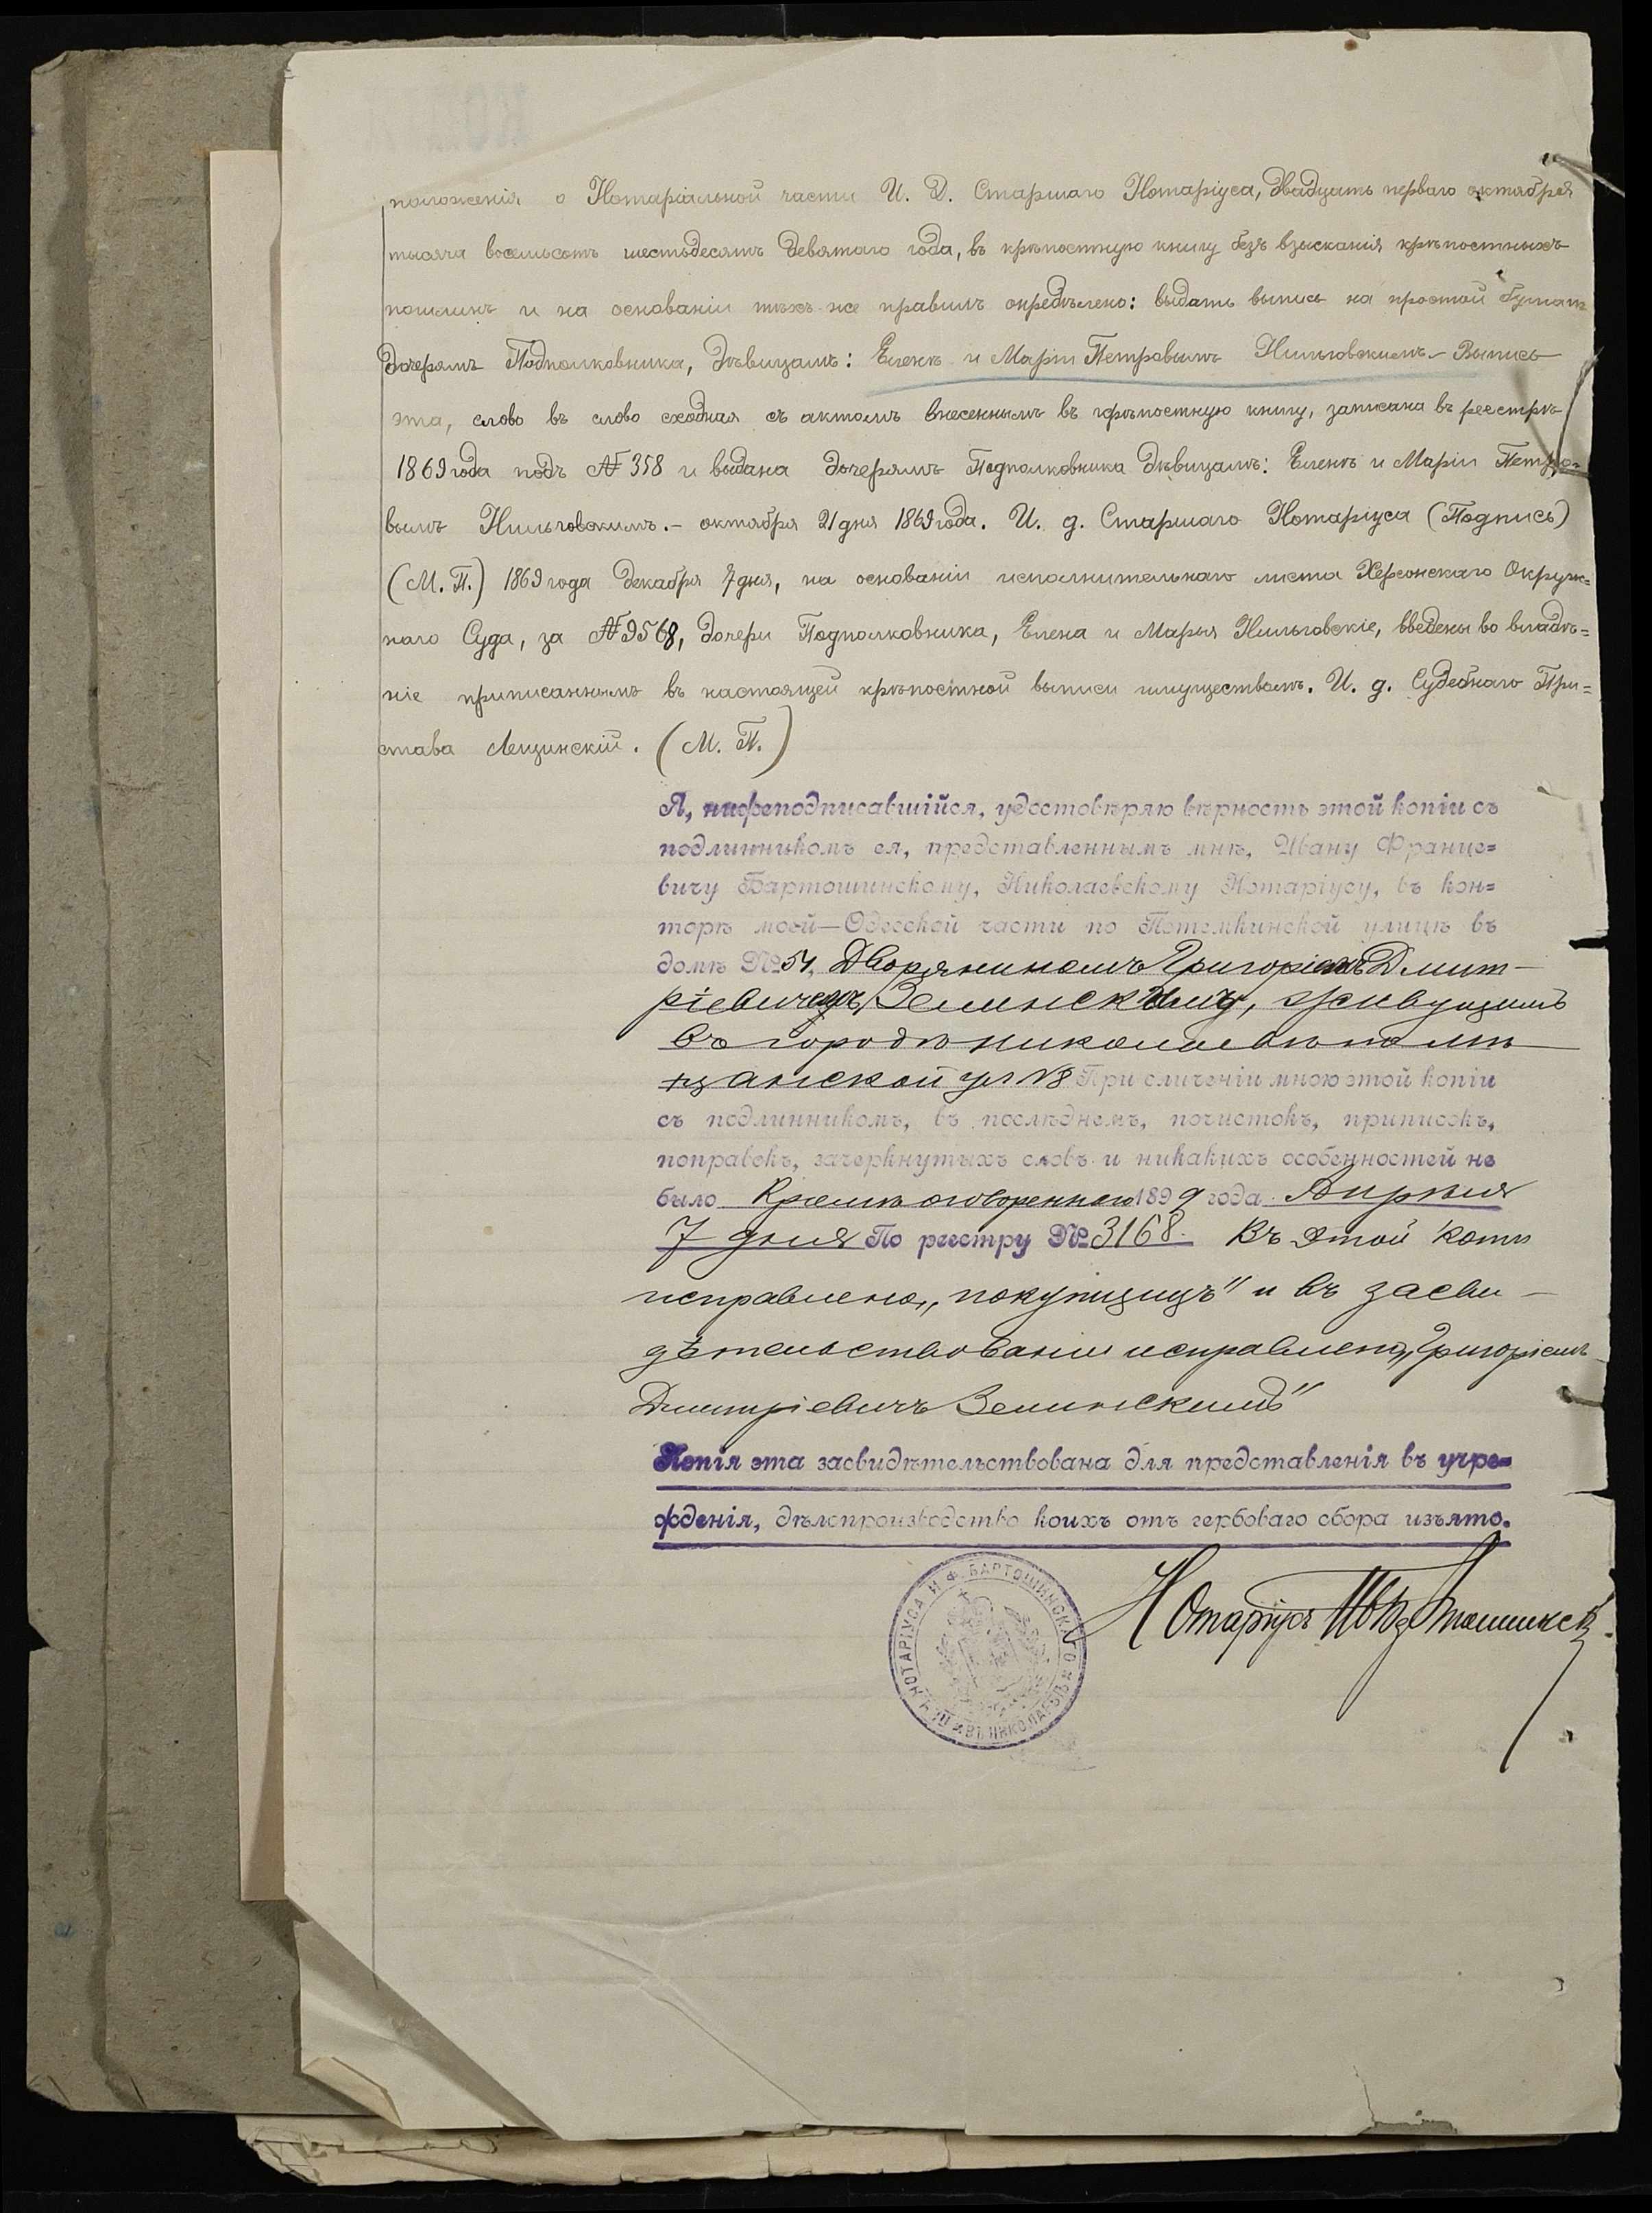 положенія о Нотаріальной части И. Д. Старшаго Нотаріуса, двадцать перваго октября
тысяча восемьсотъ шестьдесятъ девятаго года, въ крѣпостную книгу безъ взысканія крѣпостныхъ
пошлинъ и на основаніи тѣхъ-же правилъ опредѣлено: выдать выпись на простой бумагѣ
дочерямъ Подполковника, дѣвицамъ: Еленѣ и Маріи Петровымъ Нильговскимъ. - Выпись
эта, слово въ слово сходная съ актомъ внесеннымъ въ крѣпостную книгу, записана въ реестрѣ
1869 года подъ № 358 и выдана дочерямъ Подполковника дѣвицамъ: Еленѣ и Маріи Петро=
вымъ Нильговскимъ. - октября 21 дня 1869 года. И. д. Старшаго Нотаріуса (Подпись)
(М. П.) 1869 года декабря 7 дня, на основаніи исполнительнаго листа Херсонскаго Окруж=
наго Суда, за № 9568, дочери Подполковника, Елена и Марья Нильговскіе, введены во владѣ=
ніе приписаннымъ въ настоящей крѣпостной выписи имуществомъ. И. д. Судебнаго При=
става Лещинскій. (М. П.)
Я, нижеподписавшійся, удостовѣряю вѣрность этой копіи съ
подлинникомъ ея, представленнымъ мнѣ, Ивану Францe=
вичу Бартошинскому, Николаевскому Нотаріусу, въ кон=
торѣ моей—Одесской части по Потемкинской улицѣ въ
домѣ № 51, Дворяниномъ Григоріемъ Дмит-
ріевичемъ Зелинскимъ, живущимъ
въ городѣ Николаевѣ по Мѣ
щанской ул № 8 При сличеніи мною этой копіи
съ подлинникомъ, въ послѣднемъ, почистокъ, приписокъ,
поправокъ, зачеркнутыхъ словъ и никакихъ особенностей не
было Кромѣ оговореннаго 1899 года Апрѣля
7 дня По реестру № 3168. Въ этой копіи
исправлено „покупщицъ" и въ засви-
дѣтельствованіи исправлено „Григоріемъ
Дмитріевичъ Зелинскимъ"
Копія эта засвидѣтельствована для представленія въ учре=
жденія, дѣлопроизводство коихъ отъ гербоваго сбора изъято.
Нотаріусъ Бартошинскій
НОТАРІУСА И. Ф. БАРТОШИНСКАГО ВЪ НИКОЛАЕВѢ